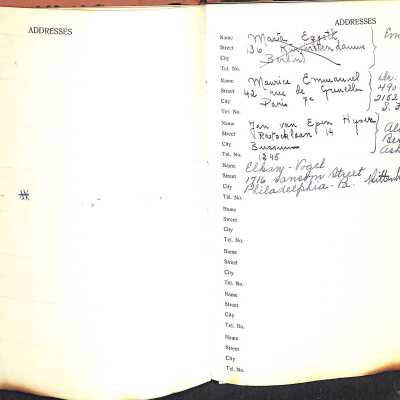 ADDRESSES
ADDRESSES
Name Marta Eggoth
Street 136 Kurfürstendamm
City Berlin
Tel. No.
Name Maurice Emmanuel
Street 42 rue de Grenelle 490
City Paris 7e
Tel. No.
Name Jan van Epen Hyser
Street Rostocklaan 14
City Bussum
Tel. No. 1845
Name Elkan-Vogel
Street 1716 Sansom Street
City Philadelphia-Pa.
Tel. No.
Name
Street
City
Tel. No.
Name
Street
City
Tel. No.
Name
Street
City
Tel. No.
Name
Street
City
Tel. No.